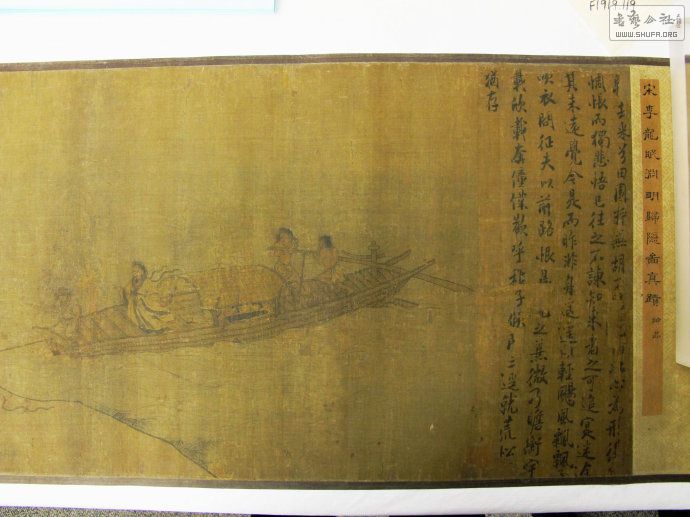 F1919.119
书艺公社
WWW.SHUFA.ORG
宋李龍眠淵明歸隱圖真蹟 神品
去來兮田園將蕪胡心為形役
惆悵而獨悲悟已往之不諫知來者之可追寔迷途
其未遠覺今是而昨非舟遙遙以輕颺風飄飄
吹衣問征夫以前路恨晨之熹微乃瞻衡宇
載欣載奔僮僕歡呼稚子候門三逕就荒松
猶存